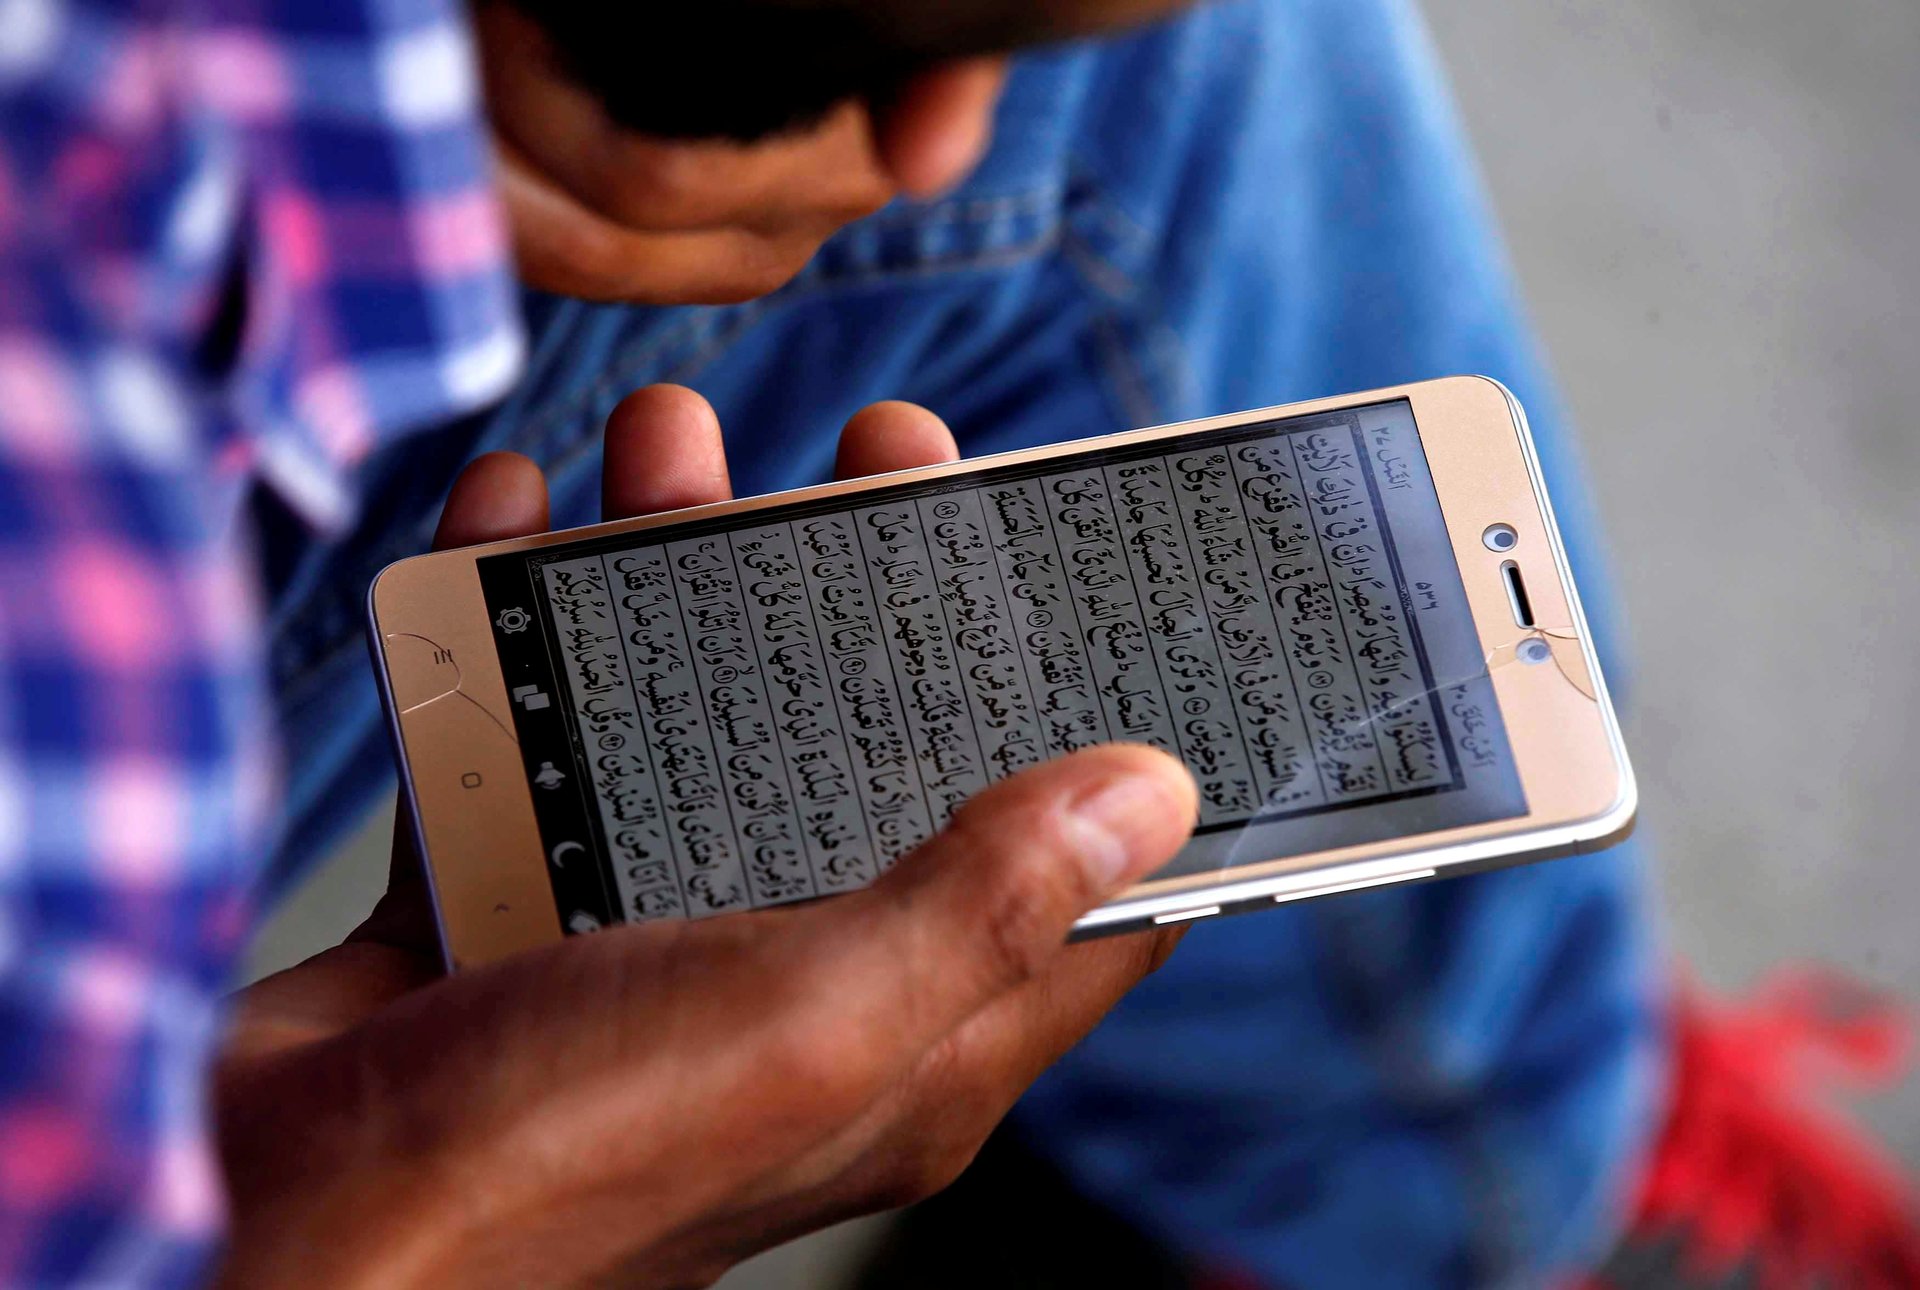 اَمَّنْ خَلَقَ ٢٠ ٥٣٦ اَلنَّمْل ٢٧
لِيَسْكُنُوْا فِيْهِ وَالنَّهَارَ مُبْصِرًا ؕ اِنَّ فِيْ ذٰلِكَ لَاٰيٰتٍ
لِّقَوْمٍ يُّؤْمِنُوْنَ ﴿٨٦﴾ وَيَوْمَ يُنْفَخُ فِي الصُّوْرِ فَفَزِعَ مَنْ
فِي السَّمٰوٰتِ وَمَنْ فِي الْاَرْضِ اِلَّا مَنْ شَآءَ اللّٰهُ ؕ وَكُلٌّ
اَتَوْهُ دٰخِرِيْنَ ﴿٨٧﴾ وَتَرَى الْجِبَالَ تَحْسَبُهَا جَامِدَةً
السَّحَابِ ؕ صُنْعَ اللّٰهِ الَّذِيْۤ اَتْقَنَ كُلَّ
بِمَا تَفْعَلُوْنَ ﴿٨٨﴾ مَنْ جَآءَ بِالْحَسَنَةِ
مِّنْهَا ۚ وَهُمْ مِّنْ فَزَعٍ يَّوْمَئِذٍ اٰمِنُوْنَ ﴿٨٩﴾
بِالسَّيِّئَةِ فَكُبَّتْ وُجُوْهُهُمْ فِي النَّارِ ؕ هَلْ
اِلَّا مَا كُنْتُمْ تَعْمَلُوْنَ ﴿٩٠﴾ اِنَّمَاۤ اُمِرْتُ اَنْ اَعْبُدَ
رَبَّ هٰذِهِ الْبَلْدَةِ الَّذِيْ حَرَّمَهَا وَلَهٗ كُلُّ شَيْءٍ ز
وَّاُمِرْتُ اَنْ اَكُوْنَ مِنَ الْمُسْلِمِيْنَ ﴿٩١﴾ۙ وَاَنْ اَتْلُوَا الْقُرْاٰنَ ۚ
فَمَنِ اهْتَدٰى فَاِنَّمَا يَهْتَدِيْ لِنَفْسِهٖ ۚ وَمَنْ ضَلَّ فَقُلْ
اِنَّمَاۤ اَنَا مِنَ الْمُنْذِرِيْنَ ﴿٩٢﴾ وَقُلِ الْحَمْدُ لِلّٰهِ سَيُرِيْكُمْ